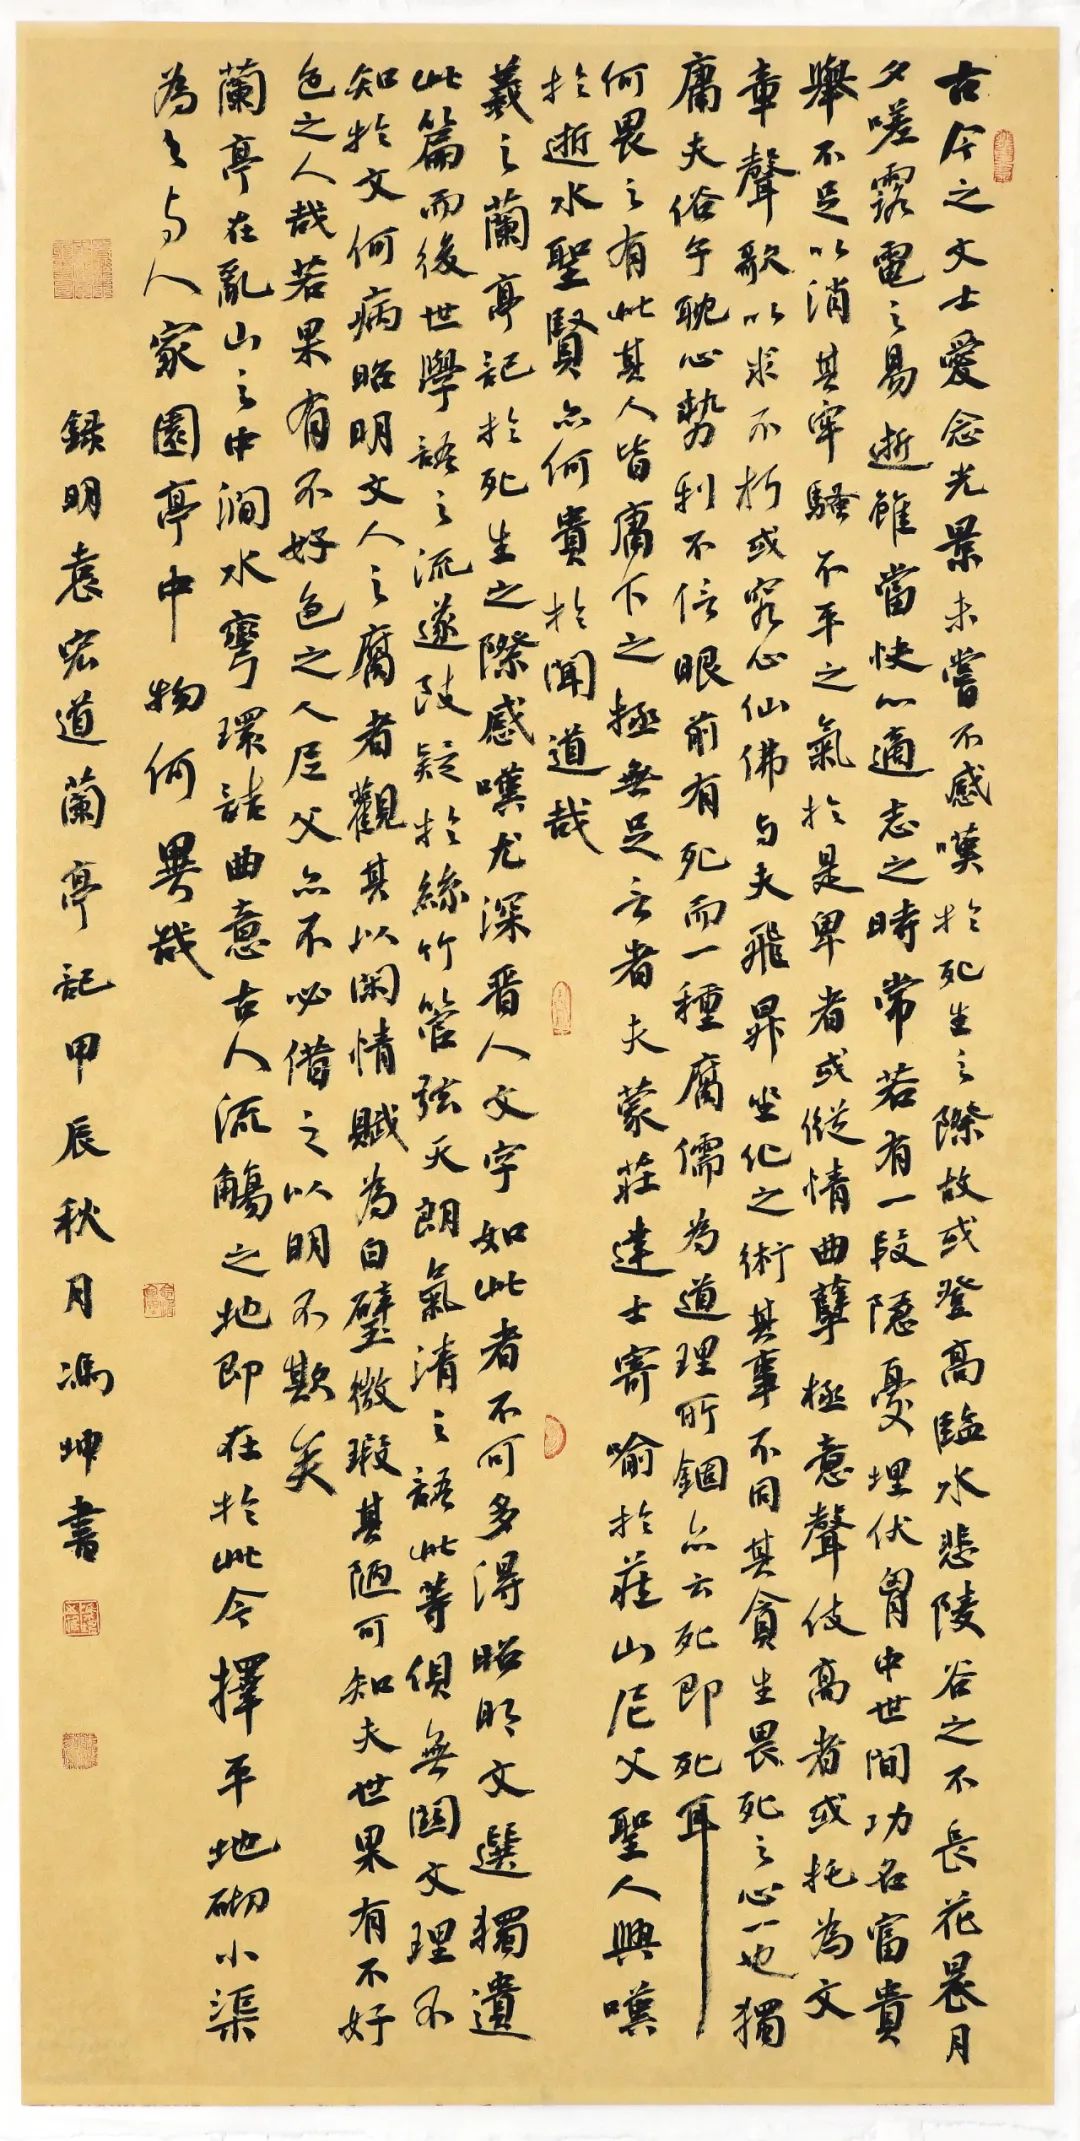 古今之文士愛念光景未嘗不感嘆於死生之際故或登高臨水悲陵谷之不長花晨月
夕嗟露電之易逝雖當快心適志之時常若有一段隱憂埋伏胷中世間功名富貴
舉不足以消其牢騷不平之氣於是卑者或縱情曲孽極意聲伎高者或托為文
章聲歌以求不朽或究心仙佛与夫飛昇坐化之術其事不同其貪生畏死之心一也獨
庸夫俗子耽心勢利不信眼前有死而一種腐儒為道理所錮亦云死即死耳
何畏之有此其人皆庸下之極無足言者夫蒙莊達士寄喻於藏山尼父聖人興嘆
於逝水聖賢亦何貴於聞道哉
羲之蘭亭記於死生之際感嘆尤深晉人文字如此者不可多得昭明文選獨遺
此篇而後世學語之流遂致疑於絲竹管弦天朗氣清之語此等俱無關文理不
知於文何病昭明文人之腐者觀其以閑情賦為白璧微瑕其陋可知夫世果有不好
色之人哉若果有不好色之人尼父亦不必借之以明不欺矣
蘭亭在亂山之中澗水彎環詰曲意古人流觴之地即在於此今擇平地砌小渠
為之与人家園亭中物何異哉
錄明袁宏道蘭亭記甲辰秋月馮坤書